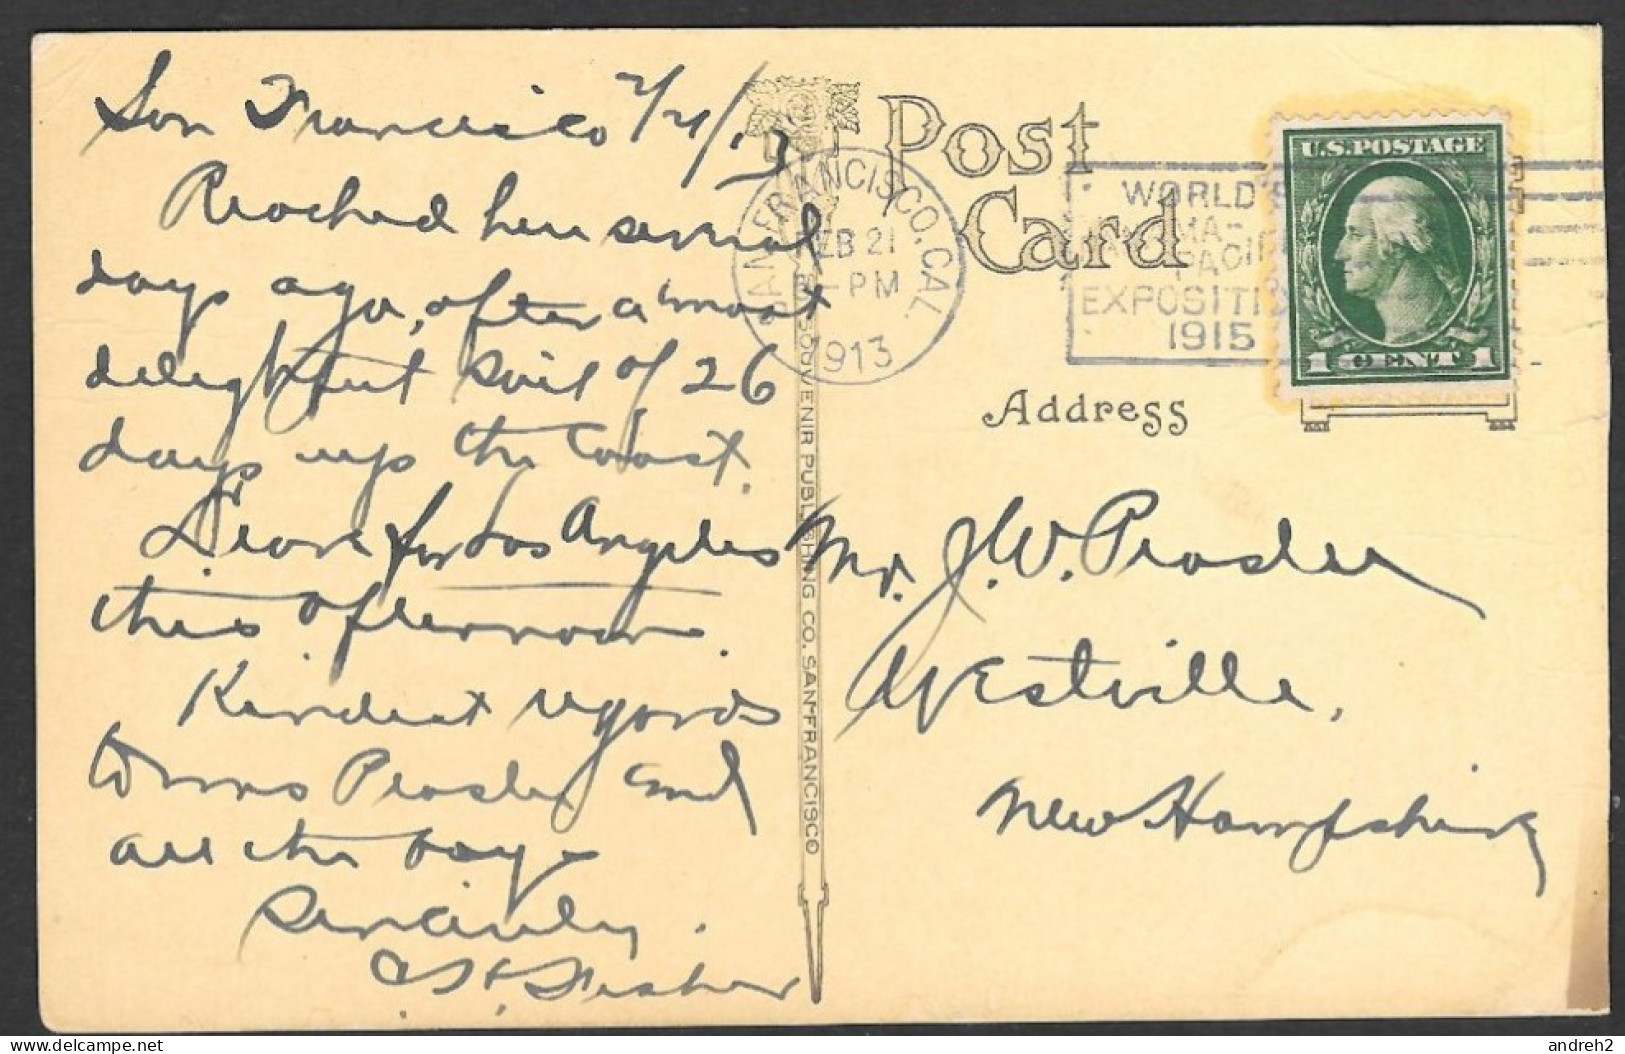 San Francisco 2/21/13
Reached here several
days ago, after a most
delightful sail of 26
days up the Coast.
Leave for Los Angeles
this afternoon.
Kindest regards
to Mrs Prosler and
all the boys
Sincerely.
Fisher
Post
Card
SAN FRANCISCO, CAL.
FEB 21
-PM
1913
WORLD'S
PANAMA-
PACIFIC
EXPOSITION
1915
U.S. POSTAGE
1 CENT 1
Address
Mr. J. W. Prosler
Westville,
New Hampshire
SOUVENIR PUBLISHING CO. SAN FRANCISCO
www.delcampe.net
andreh2